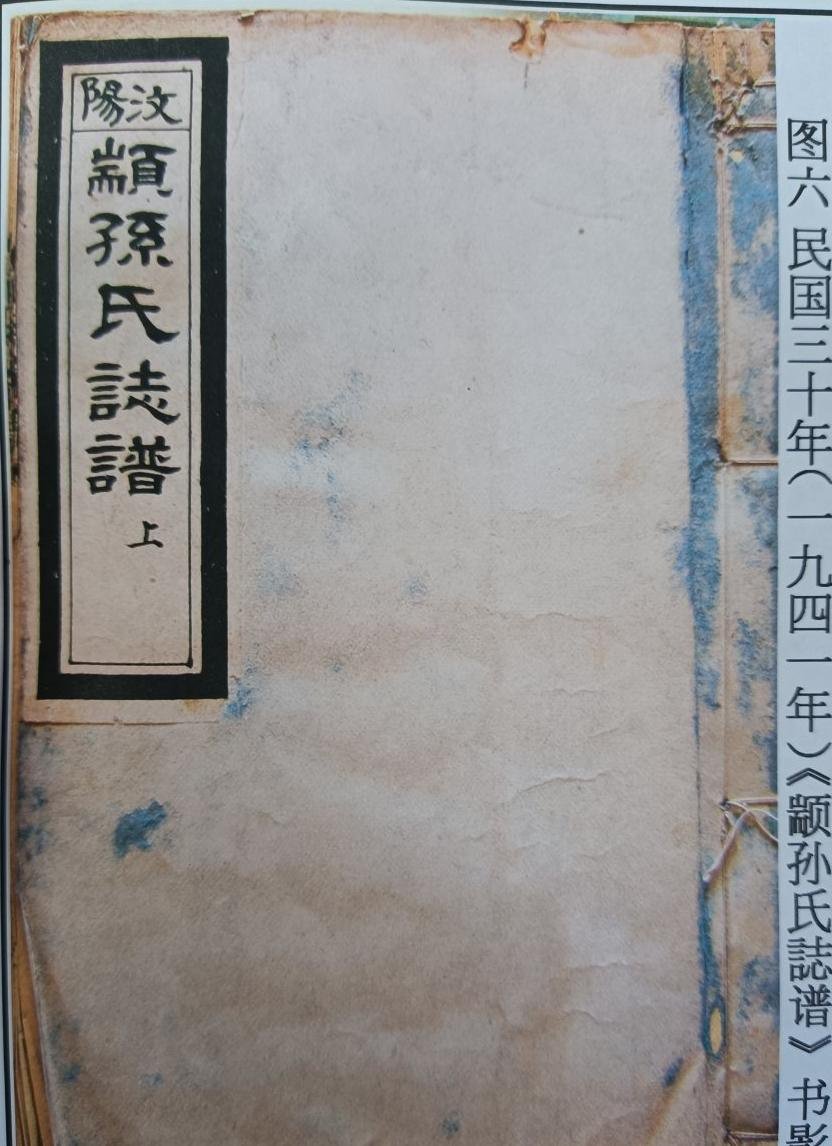 图六 民国三十年（一九四一年）《颛孙氏誌谱》书影
汶陽
顓孫氏誌譜 上